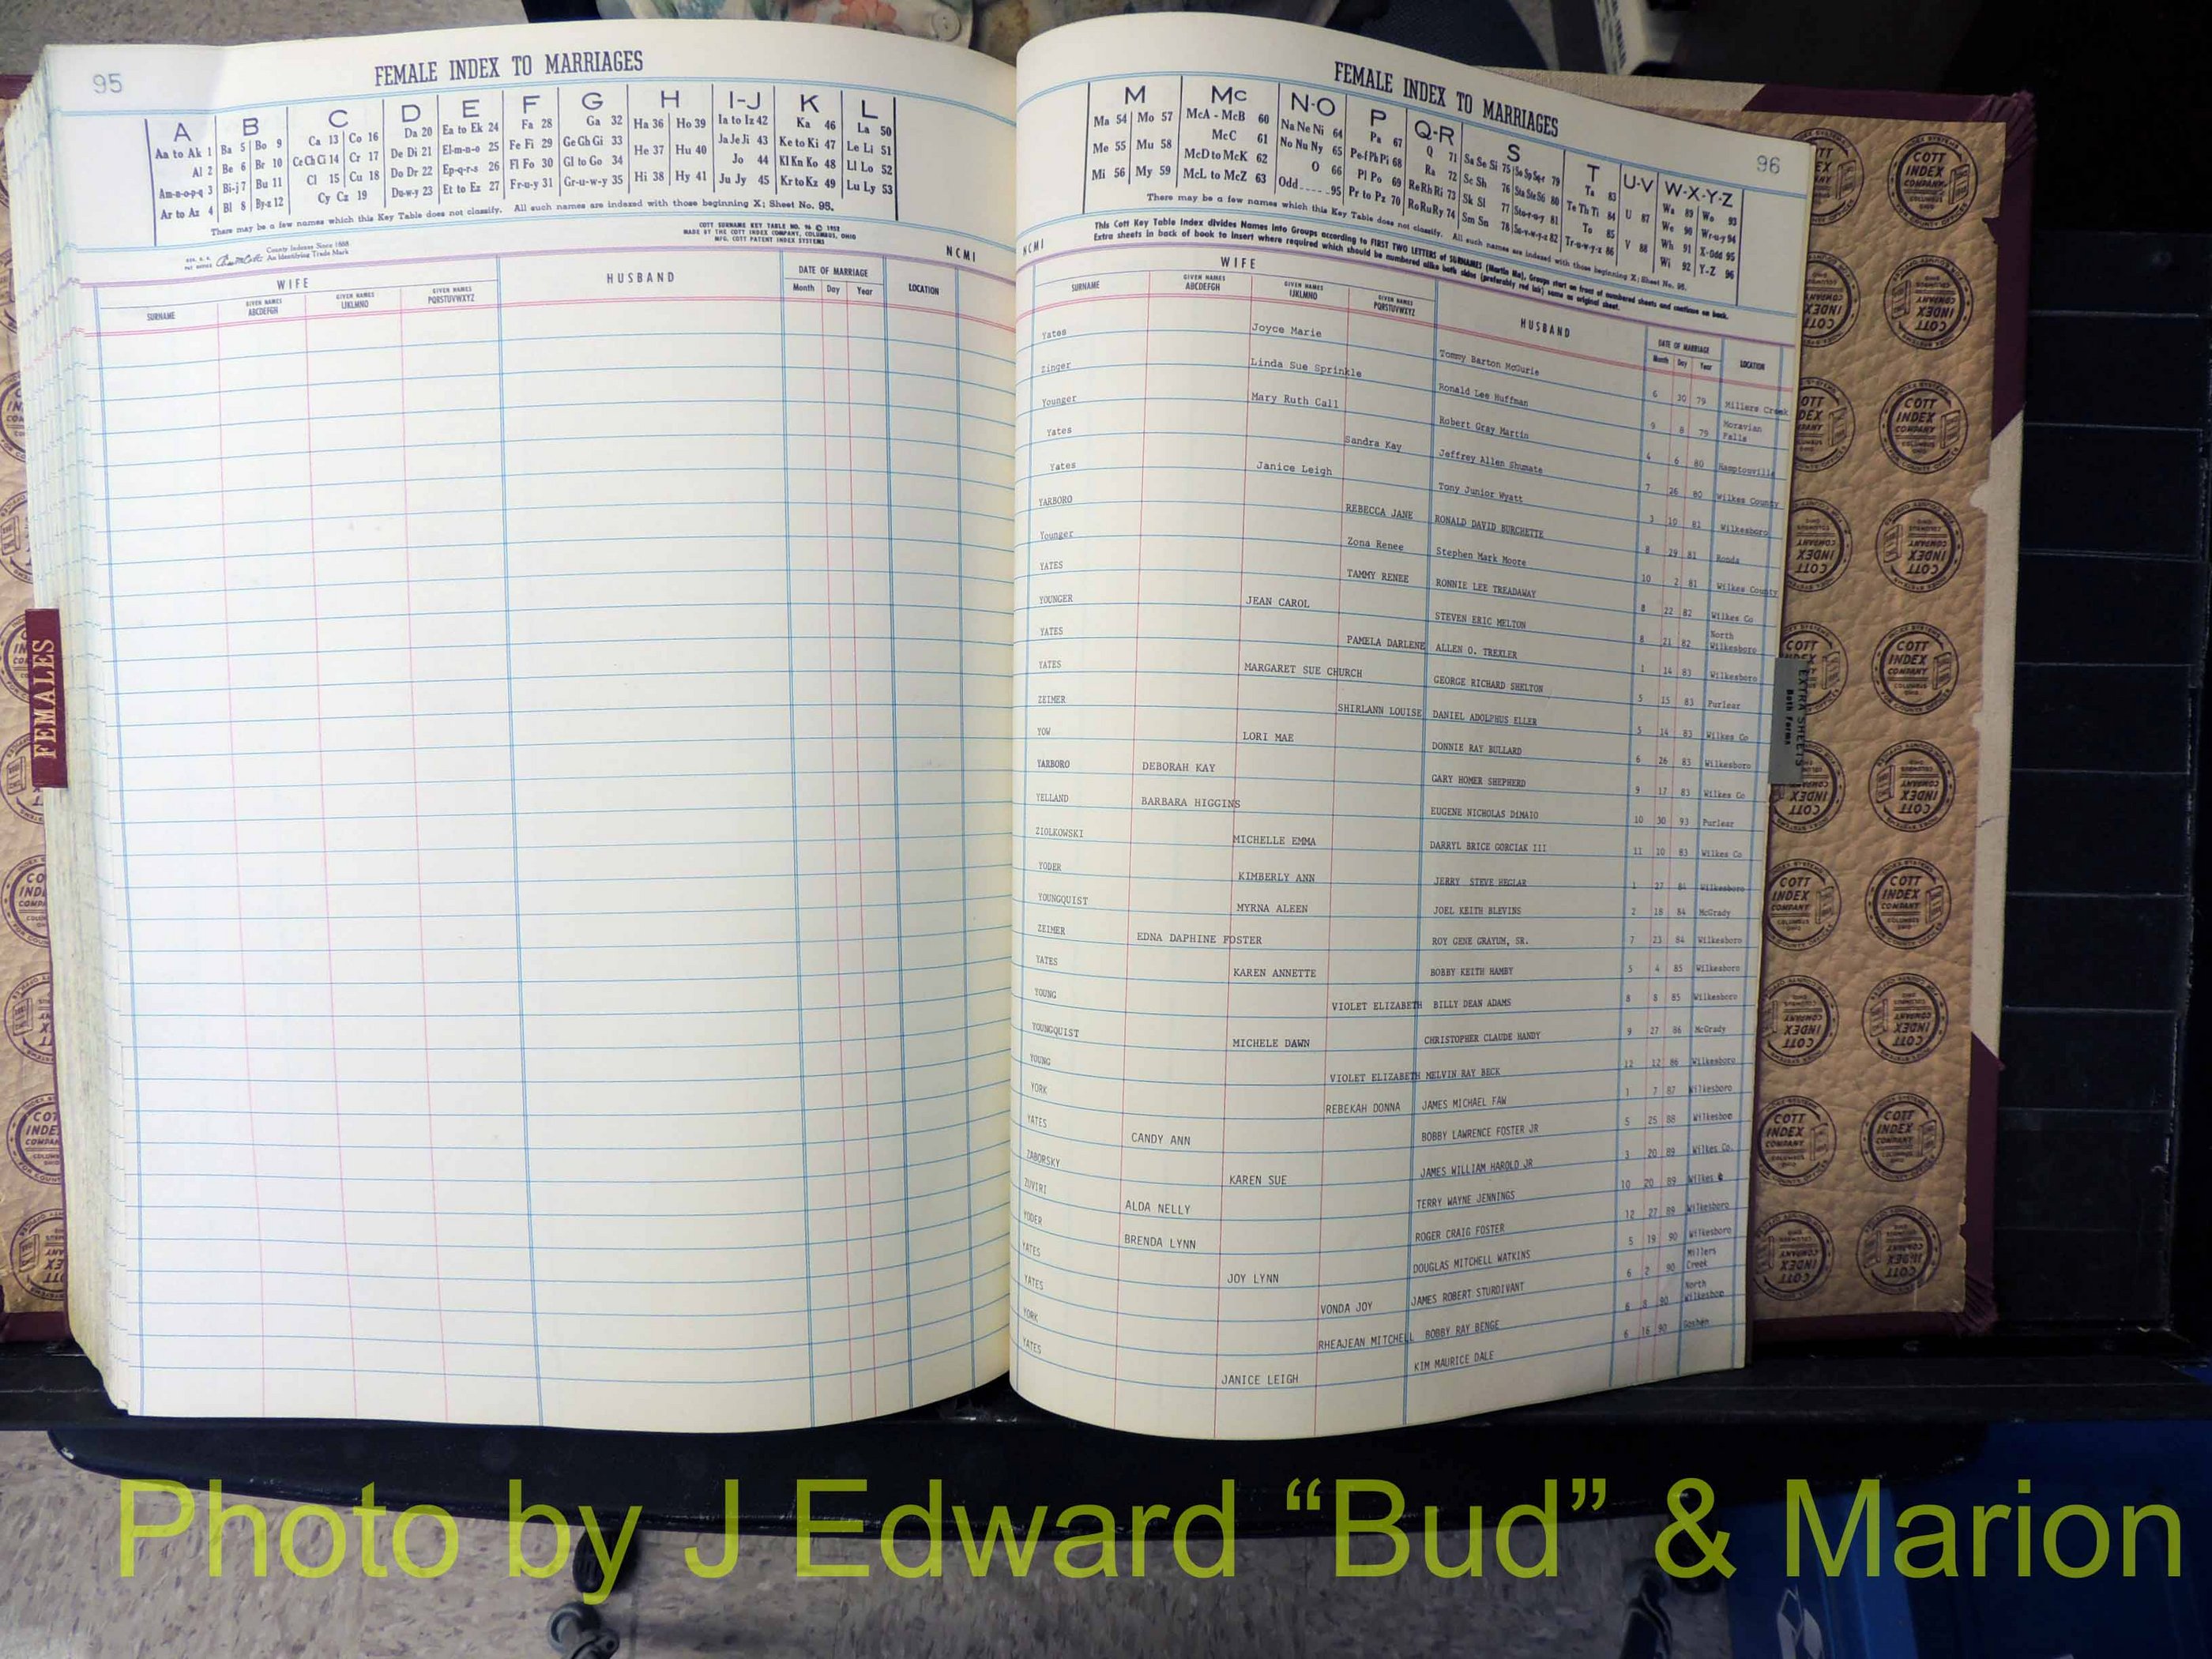 95
FEMALE INDEX TO MARRIAGES
A B C D E F G H I-J K L
Aa to Ak 1 Ba 5 Bo 9 Ca 13 Co 16 Da 20 Ea to Ek 24 Fa 28 Ga 32 Ha 36 Ho 39 Ia to Iz 42 Ka 46 La 50
Al 2 Be 6 Br 10 Ce Ch Ci 14 Cr 17 De Di 21 El-m-n-o 25 Fe Fi 29 Ge Gh Gi 33 He 37 Hu 40 Ja Je Ji 43 Ke to Ki 47 Le Li 51
Am-n-o-p-q 3 Bi-j 7 Bu 11 Cl 15 Cu 18 Do Dr 22 Ep-q-r-s 26 Fl Fo 30 Gl to Go 34 Hi 38 Hy 41 Jo 44 Kl Kn Ko 48 Ll Lo 52
Ar to Az 4 Bl 8 By-z 12 Cy Cz 19 Du-w-y 23 Et to Ez 27 Fr-u-y 31 Gr-u-w-y 35 Ju Jy 45 Kr to Kz 49 Lu Ly 53
There may be a few names which this Key Table does not classify. All such names are indexed with those beginning X; Sheet No. 95.
County Indexes Since 1888
An Identifying Trade Mark
COTT SURNAME KEY TABLE NO. 96 © 1952
MADE BY THE COTT INDEX COMPANY, COLUMBUS, OHIO
MFG. COTT PATENT INDEX SYSTEMS
NCMI
WIFE HUSBAND DATE OF MARRIAGE LOCATION
SURNAME GIVEN NAMES ABCDEFGH GIVEN NAMES IJKLMNO GIVEN NAMES PQRSTUVWXYZ Month Day Year
FEMALES
FEMALE INDEX TO MARRIAGES
96
M Mc N-O P Q-R S T U-V W-X-Y-Z
Ma 54 Mo 57 McA - McB 60 Na Ne Ni 64 Pa 67 Q 71 Sa Se Si 75 So Sp Sq-r 79 Ta 83 U 87 Wa 89 Wo 93
Me 55 Mu 58 McC 61 No Nu Ny 65 Pe-f Ph Pi 68 Ra 72 Sc Sh 76 Sta Ste S6 80 Te Th Ti 84 V 88 We 90 Wr-u-y 94
Mi 56 My 59 McD to McK 62 O 66 Pl Po 69 Re Rh Ri 73 Sk Sl 77 Sto-r-u-y 81 To 85 Wh 91 X-Odd 95
McL to McZ 63 Odd 95 Pr to Pz 70 Ro Ru Ry 74 Sm Sn 78 Su-v-w-y-z 82 Tr-u-w-y-z 86 Wi 92 Y-Z 96
There may be a few names which this Key Table does not classify. All such names are indexed with those beginning X; Sheet No. 95.
This Cott Key Table Index divides Names into Groups according to FIRST TWO LETTERS of SURNAMES (Martin Ma). Groups start on front of numbered sheets and continue on back.
Extra sheets in back of book to insert where required which should be numbered alike both sides (preferably red ink) same as original sheet.
NCMI
WIFE HUSBAND DATE OF MARRIAGE LOCATION
SURNAME GIVEN NAMES ABCDEFGH GIVEN NAMES IJKLMNO GIVEN NAMES PQRSTUVWXYZ Month Day Year
Yates Joyce Marie Tommy Barton McGurie 6 30 79 Millers Creek
Zinger Linda Sue Sprinkle Ronald Lee Huffman 9 8 79 Moravian Falls
Younger Mary Ruth Call Robert Gray Martin 4 6 80 Hamptonville
Yates Sandra Kay Jeffrey Allen Shumate 7 26 80 Wilkes County
Yates Janice Leigh Tony Junior Wyatt 3 10 81 Wilkesboro
YARBORO REBECCA JANE RONALD DAVID BURCHETTE 8 29 81 Ronda
Younger Zona Renee Stephen Mark Moore 10 2 81 Wilkes County
YATES TAMMY RENEE RONNIE LEE TREADAWAY 8 22 82 Wilkes Co
YOUNGER JEAN CAROL STEVEN ERIC MELTON 8 21 82 North Wilkesboro
YATES PAMELA DARLENE ALLEN O. TREXLER 1 14 83 Wilkesboro
YATES MARGARET SUE CHURCH GEORGE RICHARD SHELTON 5 15 83 Purlear
ZEIMER SHIRLANN LOUISE DANIEL ADOLPHUS ELLER 5 14 83 Wilkes Co
YOW LORI MAE DONNIE RAY BULLARD 6 26 83 Wilkesboro
YARBORO DEBORAH KAY GARY HOMER SHEPHERD 9 17 83 Wilkes Co
YELLAND BARBARA HIGGINS EUGENE NICHOLAS DiMAIO 10 30 93 Purlear
ZIOLKOWSKI MICHELLE EMMA DARRYL BRICE GORCIAK III 11 10 83 Wilkes Co
YODER KIMBERLY ANN JERRY STEVE HEGLAR 1 27 84 Wilkesboro
YOUNGQUIST MYRNA ALEEN JOEL KEITH BLEVINS 2 18 84 McGrady
ZEIMER EDNA DAPHINE FOSTER ROY GENE GRAYUM, SR. 7 23 84 Wilkesboro
YATES KAREN ANNETTE BOBBY KEITH HAMBY 5 4 85 Wilkesboro
YOUNG VIOLET ELIZABETH BILLY DEAN ADAMS 8 8 85 Wilkesboro
YOUNGQUIST MICHELE DAWN CHRISTOPHER CLAUDE HANDY 9 27 86 McGrady
YOUNG VIOLET ELIZABETH MELVIN RAY BECK 12 12 86 Wilkesboro
YORK REBEKAH DONNA JAMES MICHAEL FAW 1 7 87 Wilkesboro
YATES CANDY ANN BOBBY LAWRENCE FOSTER JR 5 25 88 Wilkesboo
ZABORSKY KAREN SUE JAMES WILLIAM HAROLD JR 3 20 89 Wilkes Co.
ZUVIRI ALDA NELLY TERRY WAYNE JENNINGS 10 20 89 Wilkes
YODER BRENDA LYNN ROGER CRAIG FOSTER 12 27 89 Wilkesboro
YATES JOY LYNN DOUGLAS MITCHELL WATKINS 5 19 90 Wilkesboro
YATES VONDA JOY JAMES ROBERT STURDIVANT 6 2 90 Millers Creek
YORK RHEAJEAN MITCHELL BOBBY RAY BENGE 6 8 90 North Wilkesboo
YATES JANICE LEIGH KIM MAURICE DALE 6 16 90 Goshen
EXTRA SHEETS
Both Forms
COTT INDEX COMPANY
Photo by J Edward “Bud” & Marion